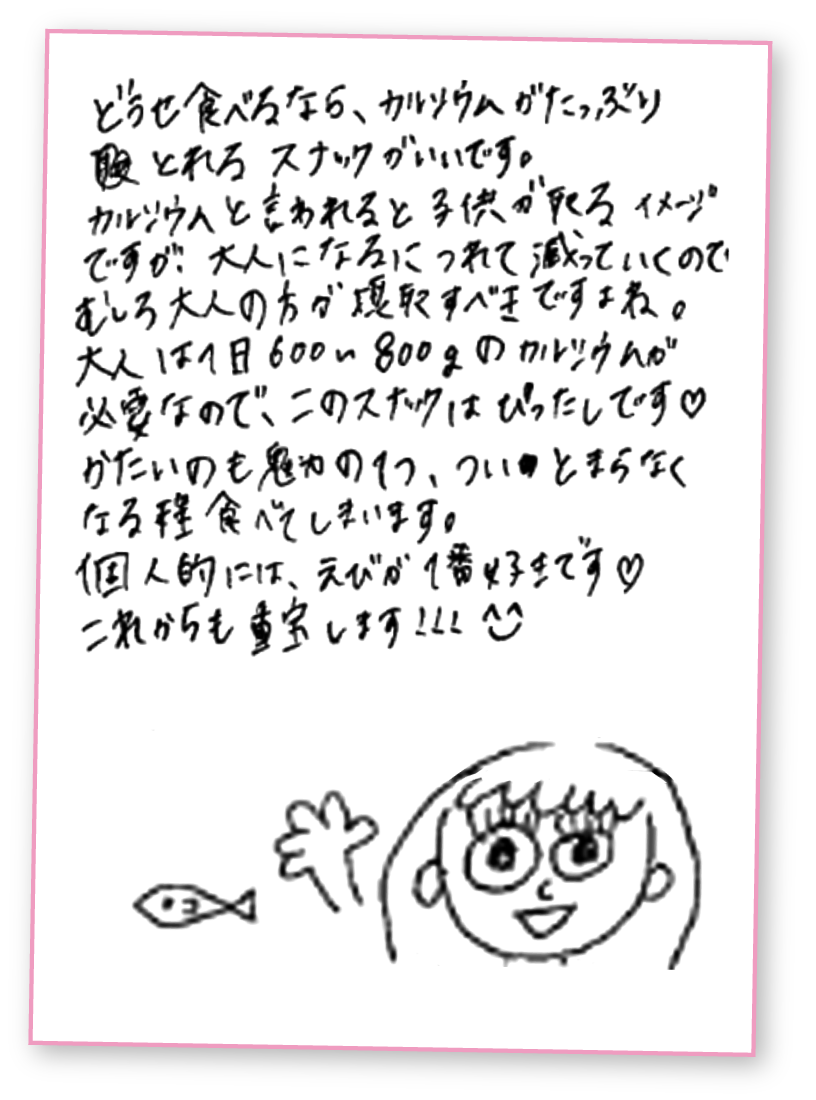 どうせ食べるなら、カルシウムがたっぷり
とれる スナックがいいです。
カルシウムと言われると子供が取るイメージ
ですが、大人になるにつれて減っていくので
むしろ大人の方が摂取すべきですよね。
大人は1日600〜800gのカルシウムが
必要なので、このスナックはぴったしです♡
かたいのも魅力の1つ、つい とまらなく
なる程食べてしまいます。
個人的には、えびが1番好きです♡
これからも重宝します!!!